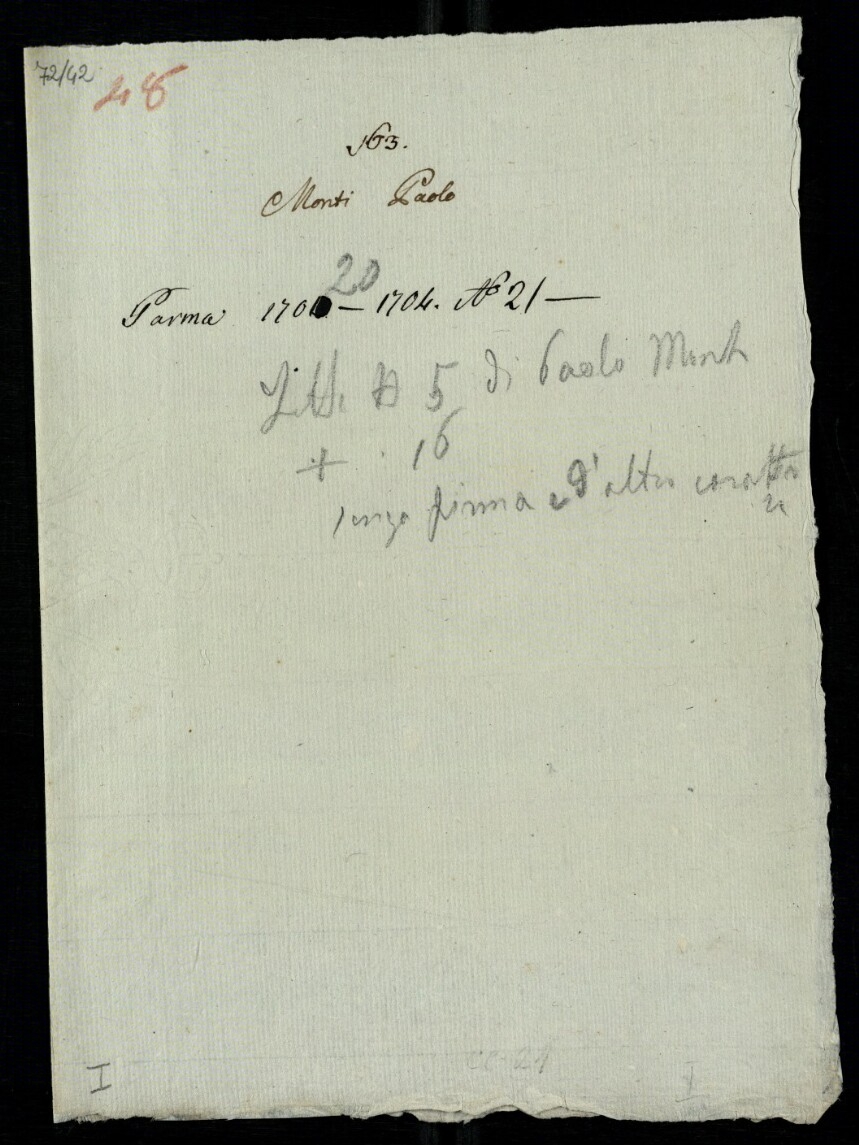 72/42
48
163.
Monti Paolo
20
Parma 1701 – 1704. N° 21 —
Lett. N 5 di Paolo Monti
+ . 16
senza firma e d'altro caratte
re
cc. 21
I I